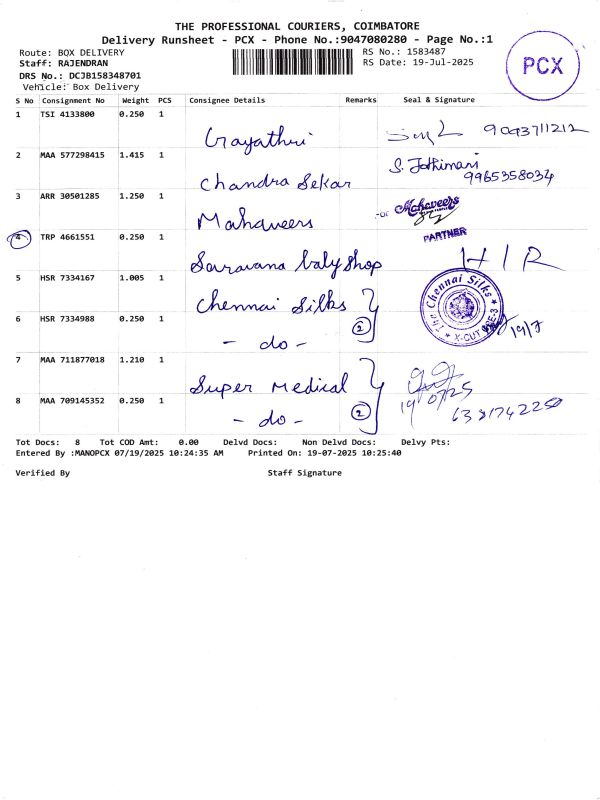 THE PROFESSIONAL COURIERS, COIMBATORE
Delivery Runsheet - PCX - Phone No.:9047080280 - Page No.:1
Route: BOX DELIVERY RS No.: 1583487
Staff: RAJENDRAN RS Date: 19-Jul-2025
PCX
DRS No.: DCJB158348701
Vehicle: Box Delivery
S No Consignment No Weight PCS Consignee Details Remarks Seal & Signature
1 TSI 4133800 0.250 1 Gayathri 9093711212
2 MAA 577298415 1.415 1 Chandra Sekar S. Jothimani 9965358034
3 ARR 30501285 1.250 1 Mahaveers For Mahaveers
PARTNER
4 TRP 4661551 0.250 1 Saravana baby shop H/R
5 HSR 7334167 1.005 1 Chennai Silks
The Chennai Silks
6 HSR 7334988 0.250 1 - do - 2 19/7
7 MAA 711877018 1.210 1 Super Medical 19/07/25
8 MAA 709145352 0.250 1 - do - 2 6381742250
Tot Docs: 8 Tot COD Amt: 0.00 Delvd Docs: Non Delvd Docs: Delvy Pts:
Entered By :MANOPCX 07/19/2025 10:24:35 AM Printed On: 19-07-2025 10:25:40
Verified By Staff Signature